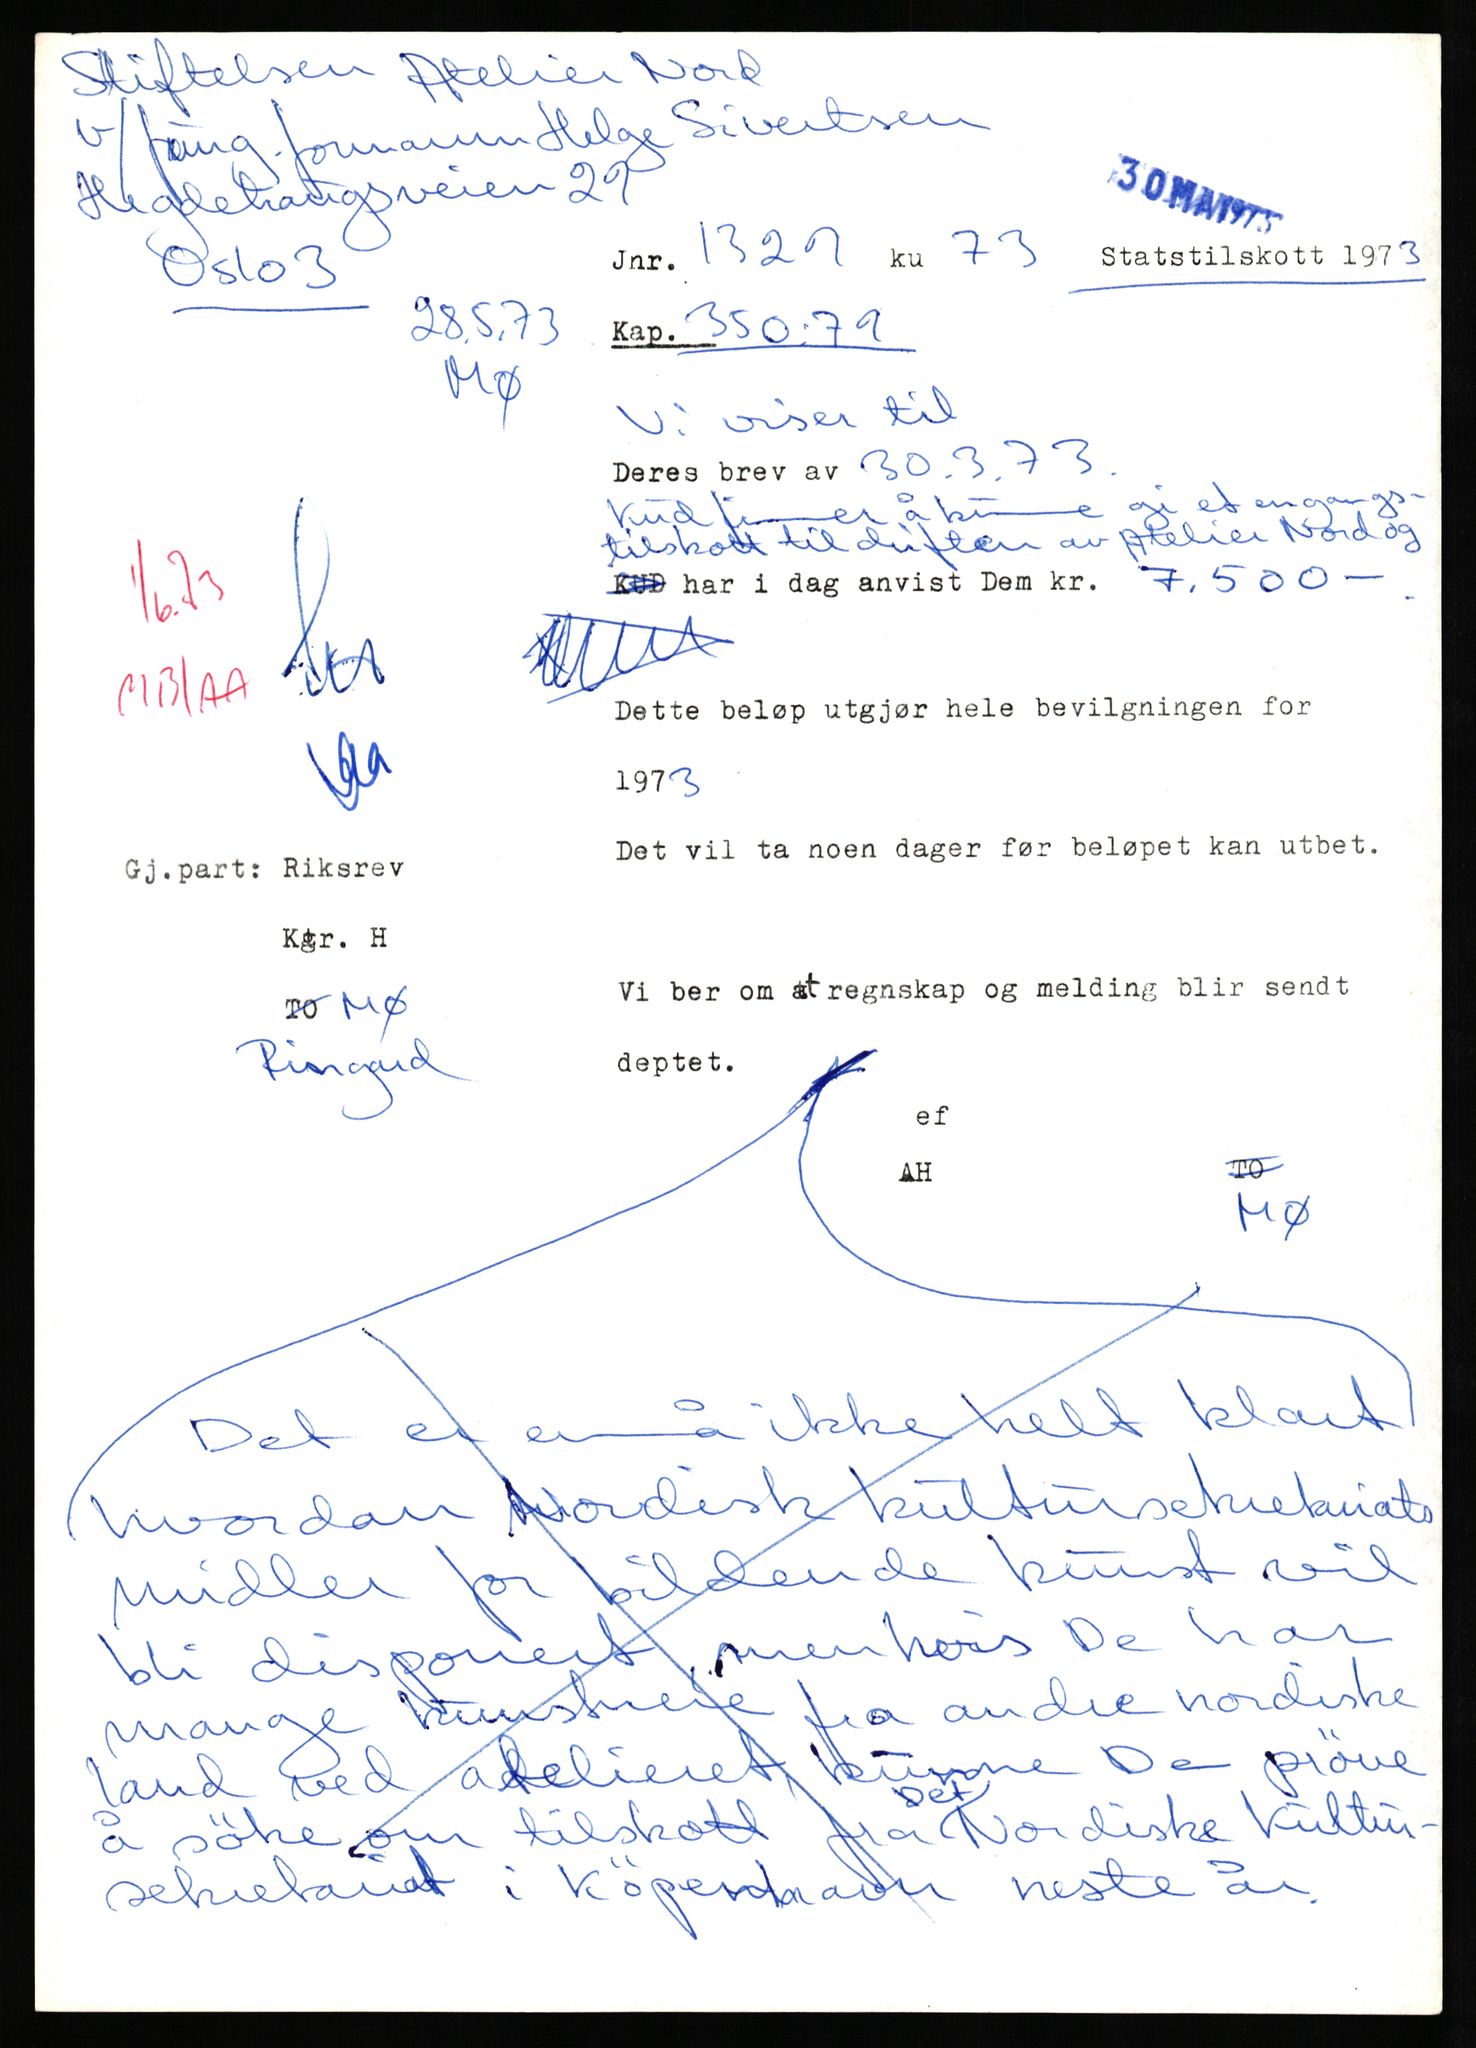 Stiftelsen Atelier Nord
v/fung. formann Helge Sivertsen
Hegdehaugsveien 29
Oslo 3
30 MAI 1973
Jnr. 1329 ku 73 Statstilskott 1973
28.5.73
MØ
Kap. 350.79
Vi viser til
Deres brev av 30.3.73.
Kud finner å kunne gi et engangs-
tilskott til driften av Atelier Nord og
KUD har i dag anvist Dem kr. 7.500-.
1/6.73
MB/AA
Dette beløp utgjør hele bevilgningen for
1973
Det vil ta noen dager før beløpet kan utbet.
Gj.part: Riksrev
Ktr. H
TO MØ
Ringard
Vi ber om at regnskap og melding blir sendt
deptet.
ef
AH TO
MØ
Det er ennå ikke helt klart
hvordan Nordisk kultursekretariats
midler for bildende kunst vil
bli disponert, men hvis De har
mange kunstnere fra andre nordiske
land ved atelieret, kunne De pröve
å söke om tilskott fra Det Nordiske Kultur-
sekretariat i Köpenhavn neste år.